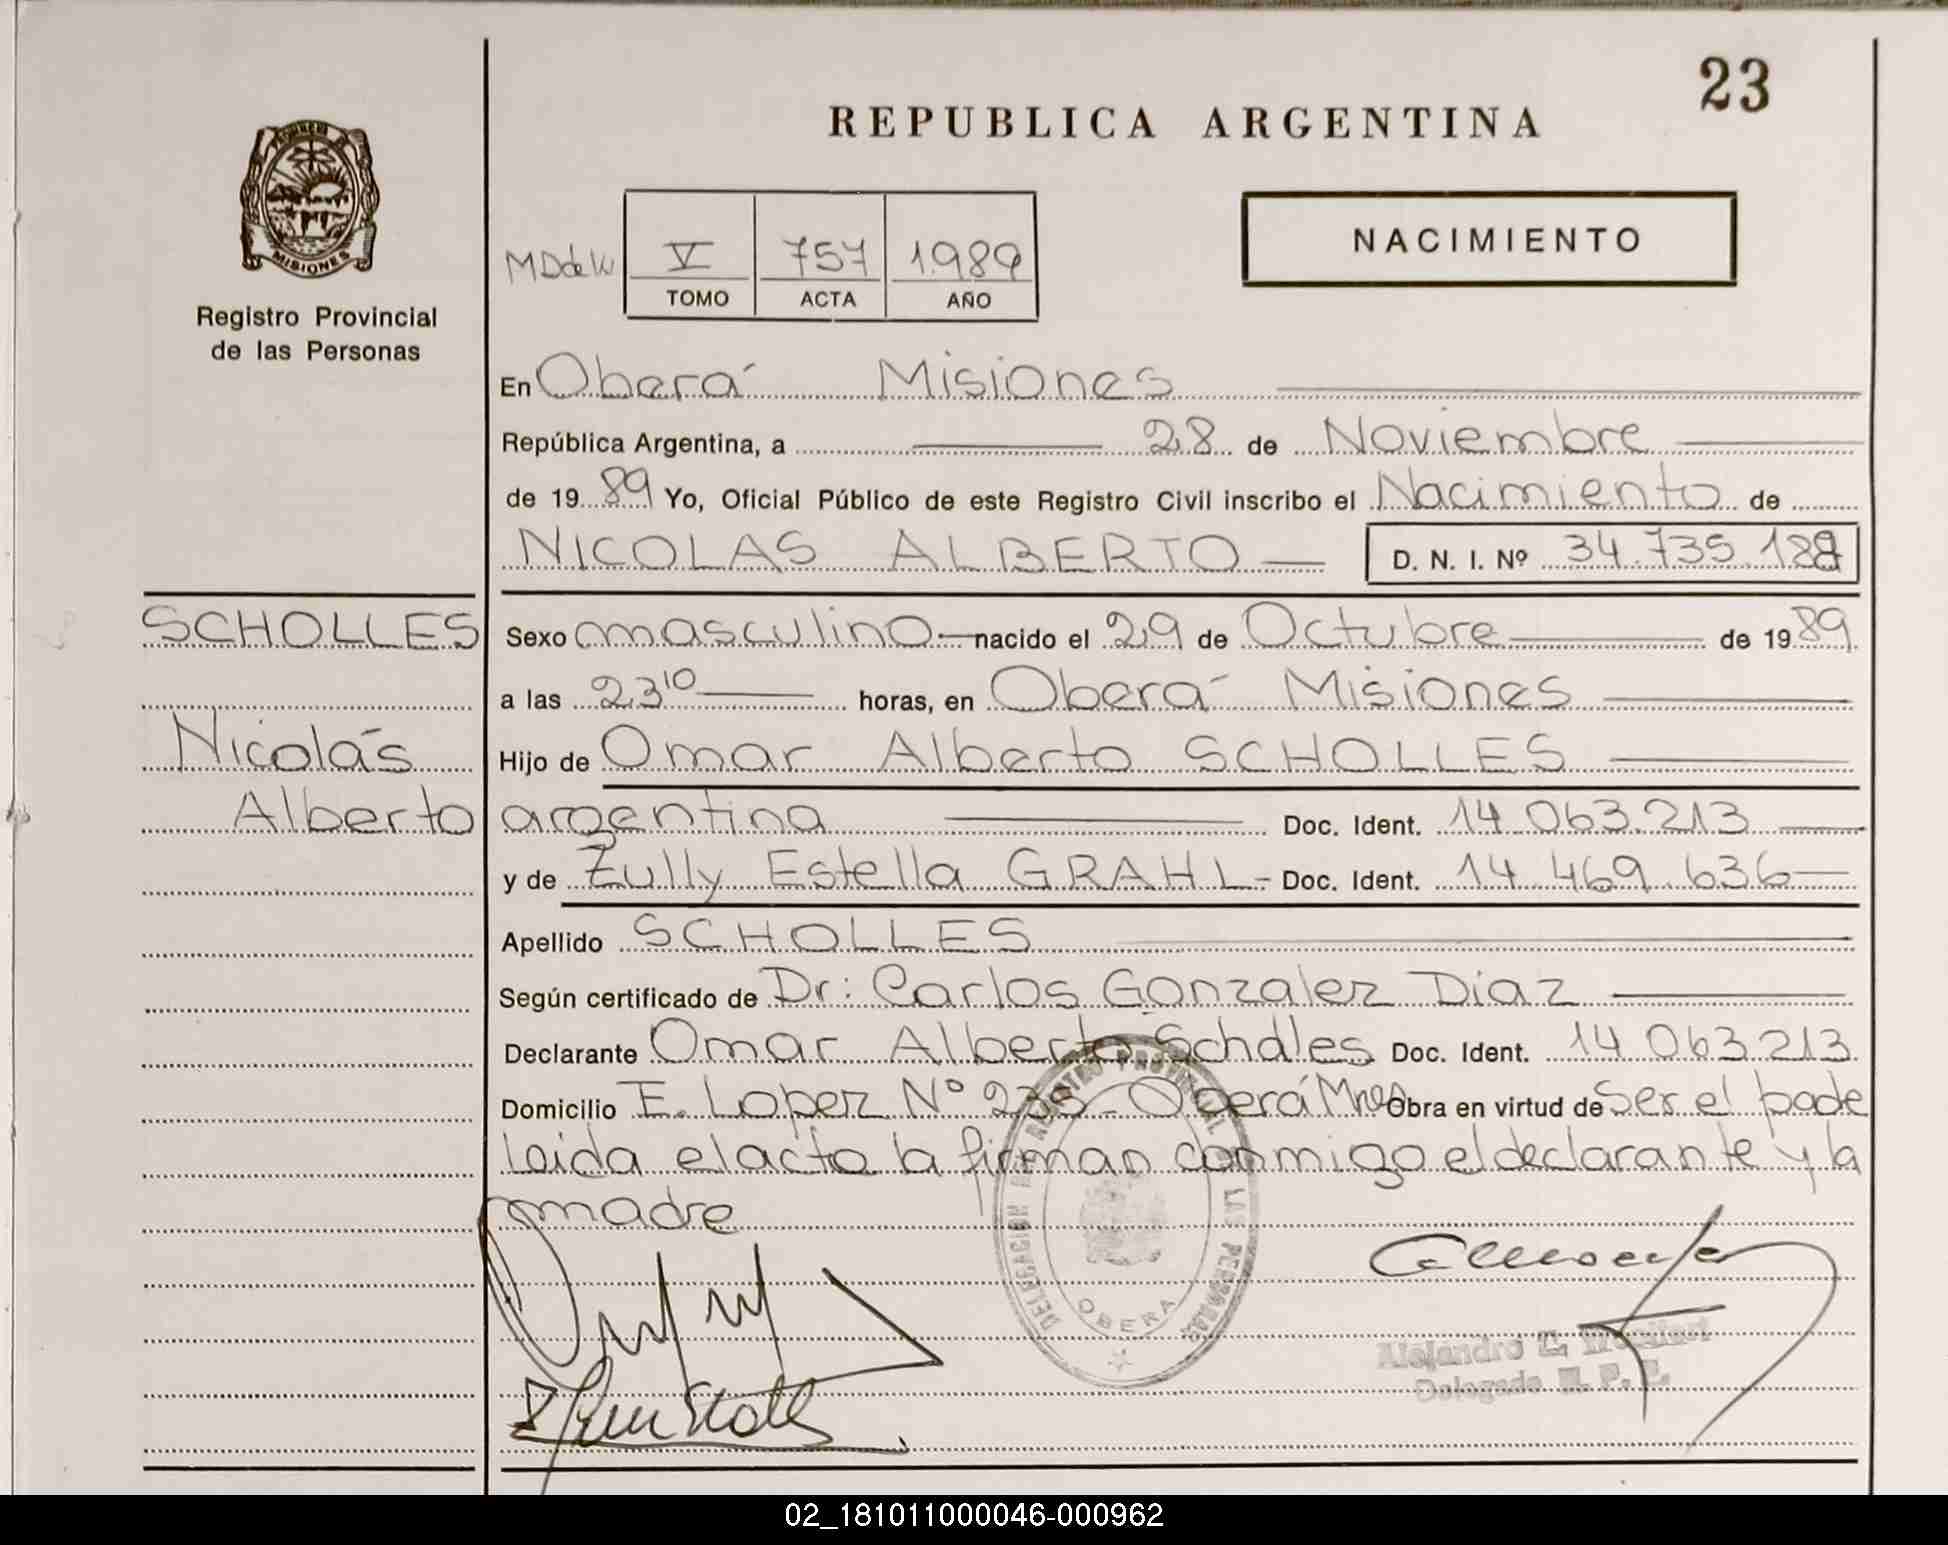 23
REPUBLICA ARGENTINA
MISIONES
Registro Provincial
de las Personas
NACIMIENTO
V 757 1989
TOMO ACTA AÑO
En Oberá Misiones
República Argentina, a 28 de Noviembre
de 1989 Yo, Oficial Público de este Registro Civil inscribo el Nacimiento de
NICOLAS ALBERTO D. N. I. Nº 34.735.188
SCHOLLES
Nicolás
Alberto
Sexo masculino nacido el 29 de Octubre de 1989
a las 23 10 horas, en Oberá Misiones
Hijo de Omar Alberto SCHOLLES
argentina Doc. Ident. 14.063.213
y de Zully Estella GRAHL - Doc. Ident. 14.469.636
Apellido SCHOLLES
Según certificado de Dr: Carlos Gonzalez Diaz
Declarante Omar Alberto Scholles Doc. Ident. 14.063.213
Domicilio E. Lopez Nº Oberá Mnes Obra en virtud de Ser el padre
Leida el acta la firman conmigo el declarante y la
madre
DELEGACION DEL REGISTRO PROVINCIAL DE LAS PERSONAS
OBERA
Alejandro
Delegado R. P. P.
02_181011000046-000962